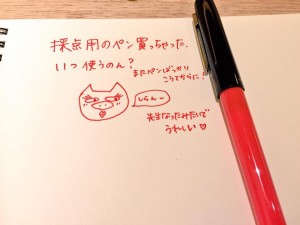 採点用のペン買っちゃった.
いつ使うのん?
またペンばっかり
こうてからに!
しらんー
先生なったみたいで
うれしい♡